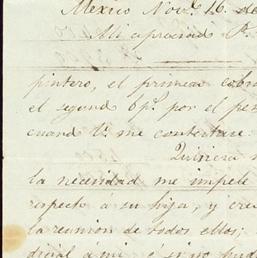 Mexico Nov.e 16. de
Mi apreciado P.
pintero, el primero cobr
el segund 6p.s por el pen
cuando V. me contestare.
Quisiera
la necesidad me impele
respecto á su hija, y cre
la reunion de todos ellos;
á mi ó si no pud